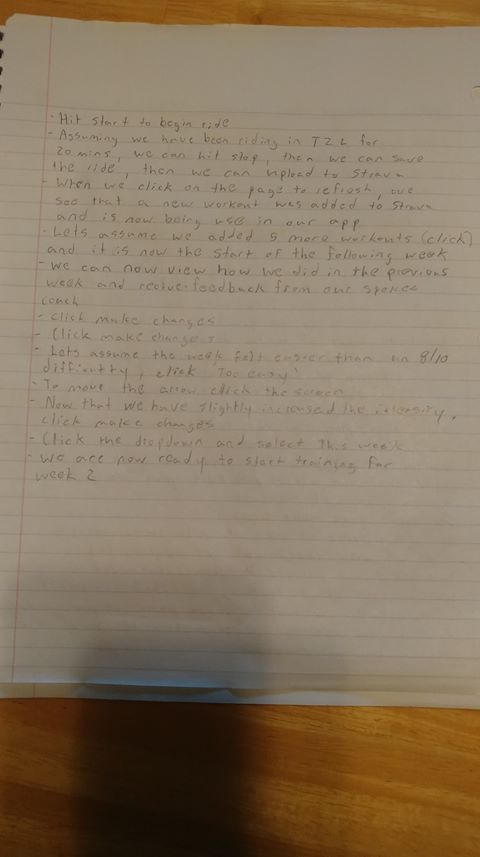 - Hit start to begin ride
- Assuming we have been riding in TZ2 for
20 mins, we can hit stop, then we can save
the ride, then we can upload to Strava
- When we click on the page to refresh, we
see that a new workout was added to Strava
and is now being use in our app
- Lets assume we added 5 more workouts (click)
and it is now the start of the following week
- we can now view how we did in the previous
week and recive feedback from our spokes
coach
- click make changes
- Click make changes
- Lets assume the week felt easier than an 8/10
difficulty, click "Too easy"
- To move the arrow click the screen
- Now that we have slightly increased the intensity,
click make changes
- Click the dropdown and select This week
- we are now ready to start training for
week 2